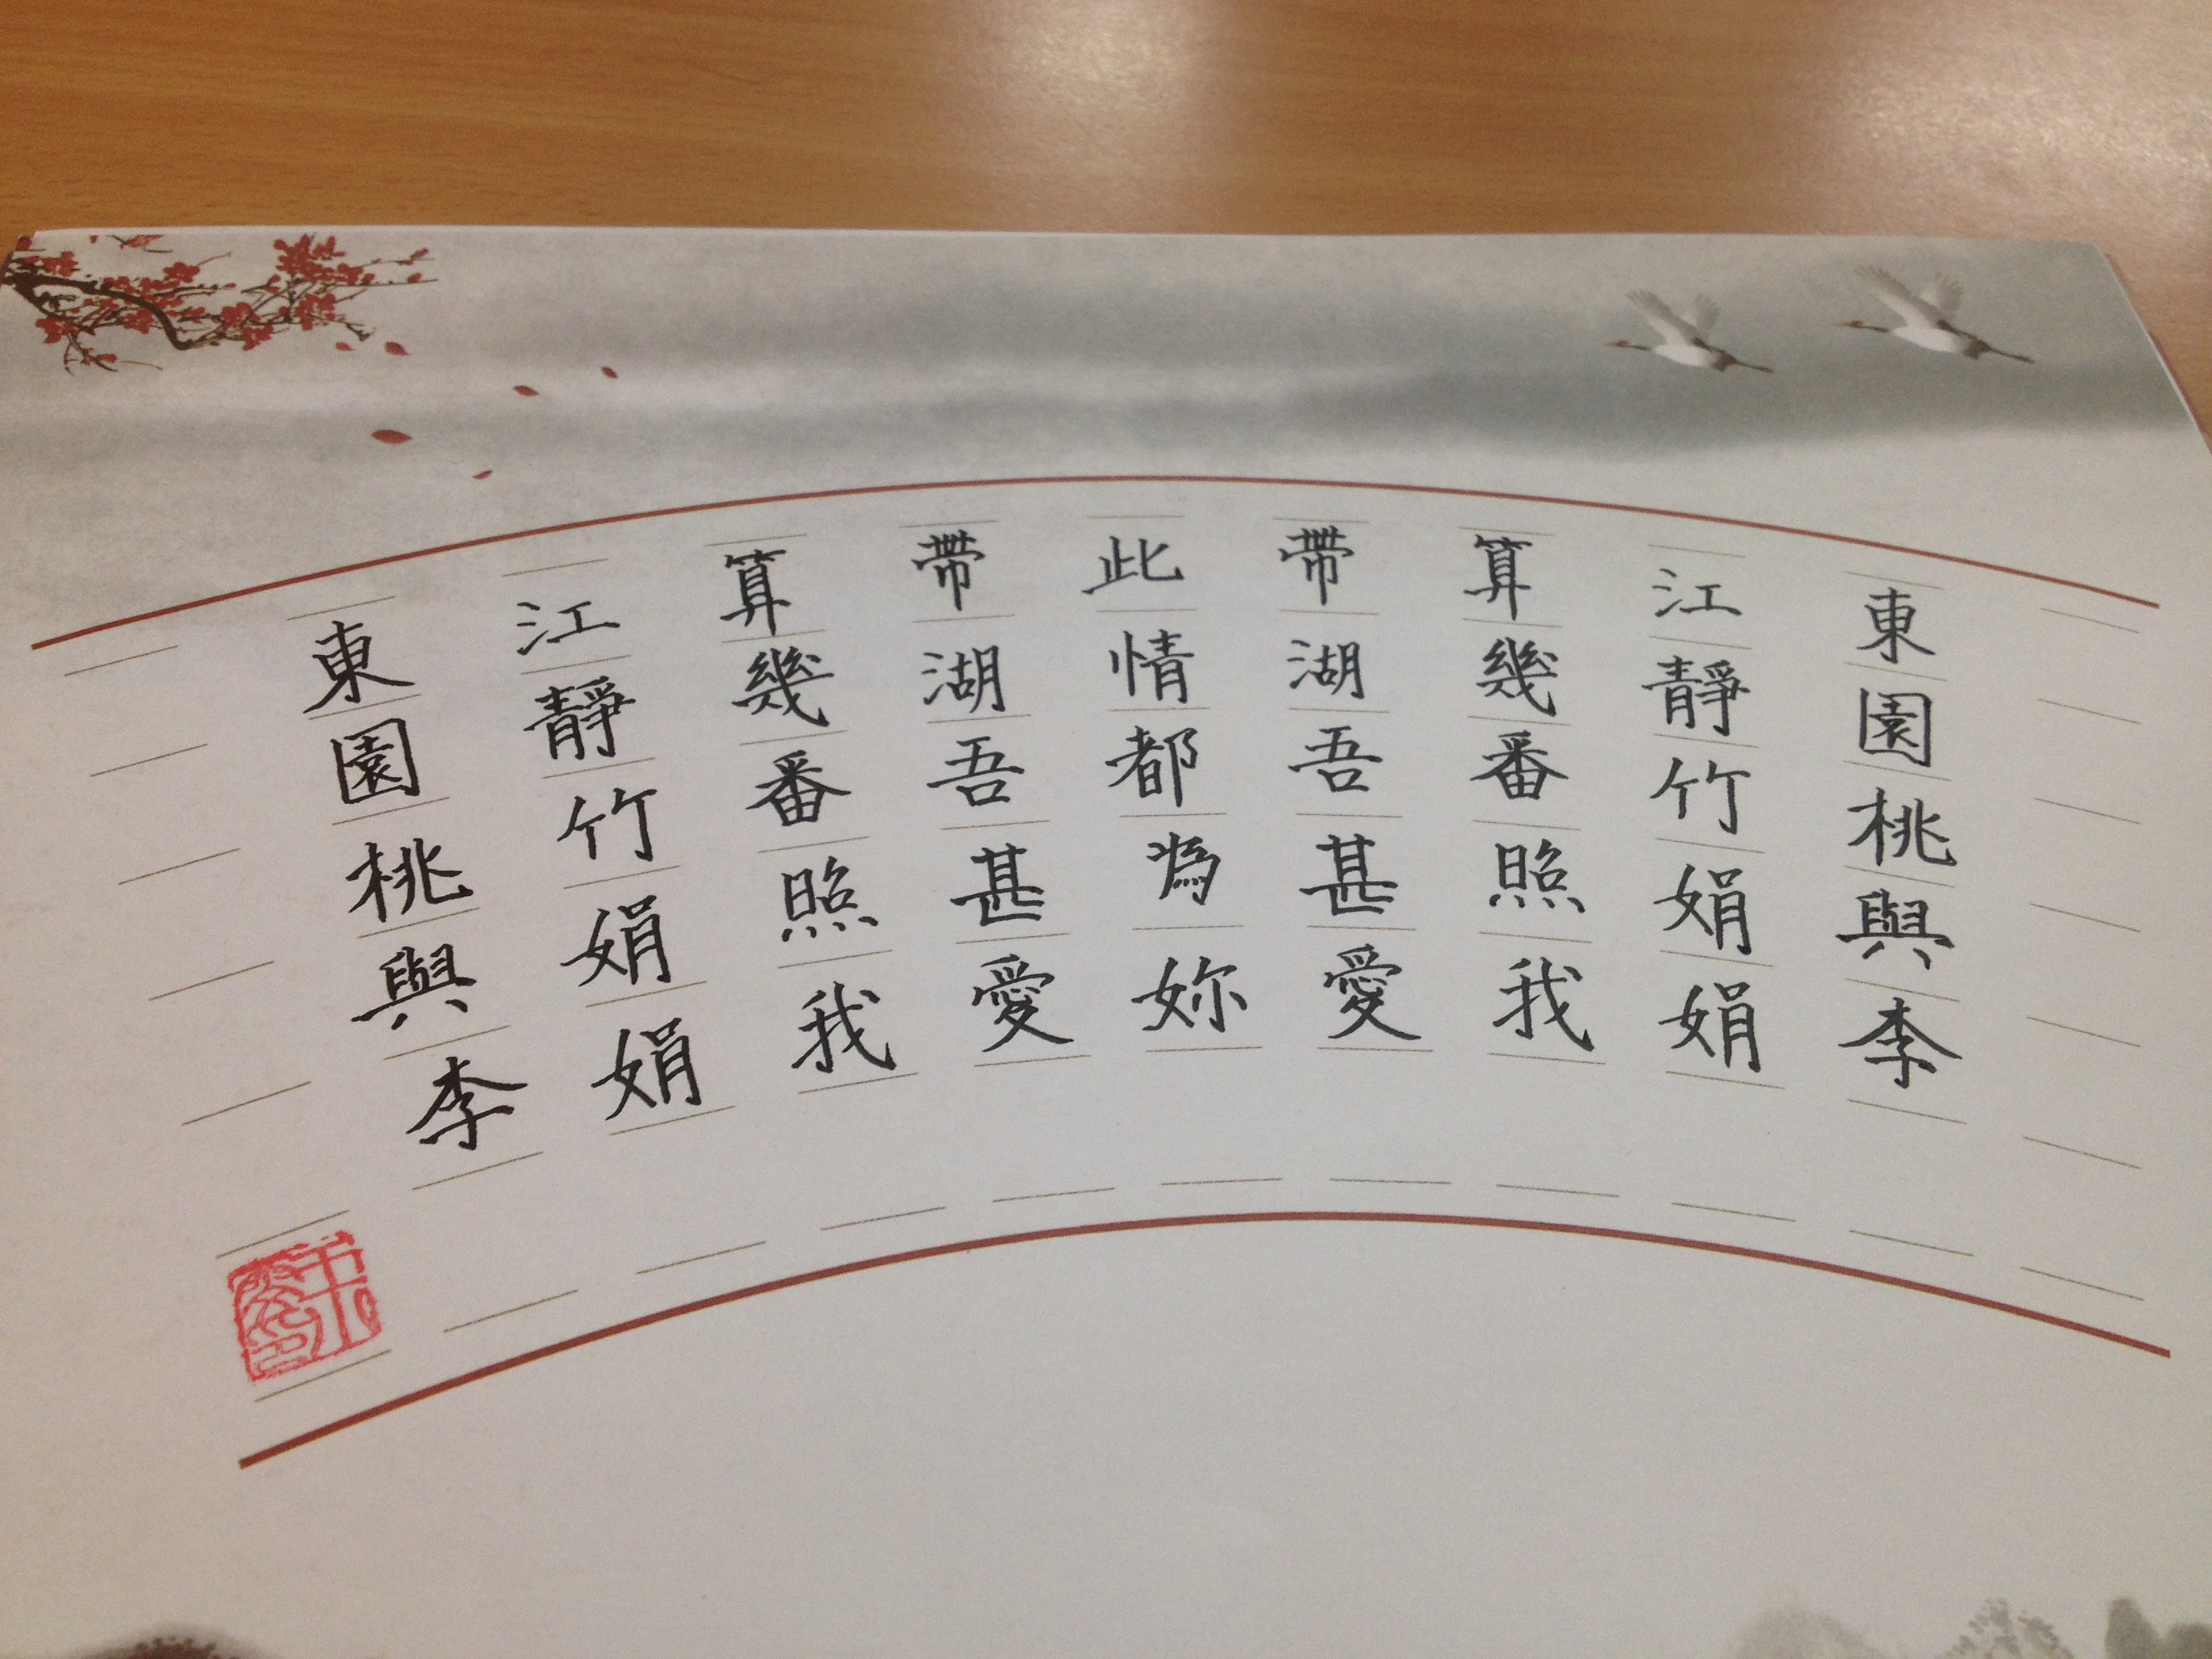 東園桃與李
江靜竹娟娟
算幾番照我
帶湖吾甚愛
此情都為妳
帶湖吾甚愛
算幾番照我
江靜竹娟娟
東園桃與李